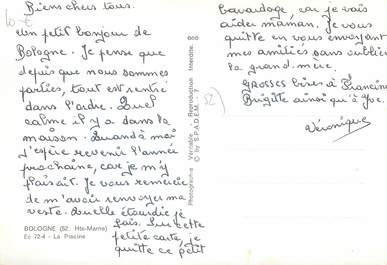 Biens chers tous.
un petit bonjour de
Bologne. Je pense que
depuis que nous sommes
parties, tout est rentré
dans l'ordre. Quel
calme il y a dans la
maison. Quand à moi
j'espère revenir l'année
prochaine, car je m'y
plaisait. Je vous remercie
de m'avoir renvoyer ma
veste. Quelle étourdie je
fais. Sur cette
petite carte, je
quitte ce petit
BOLOGNE (52. Hte-Marne)
Ec 72-4 - La Piscine
Photographie Véritable - Reproduction Interdite.
© by S.P.A.D.E.M. - 7
bavardage, car je vais
aider maman. Je vous
quitte en vous envoyant
mes amitiés sans oublier
la grand-mère.
GROSSES bises à Francine
Brigitte ainsi qu'à Yve.
Véronique